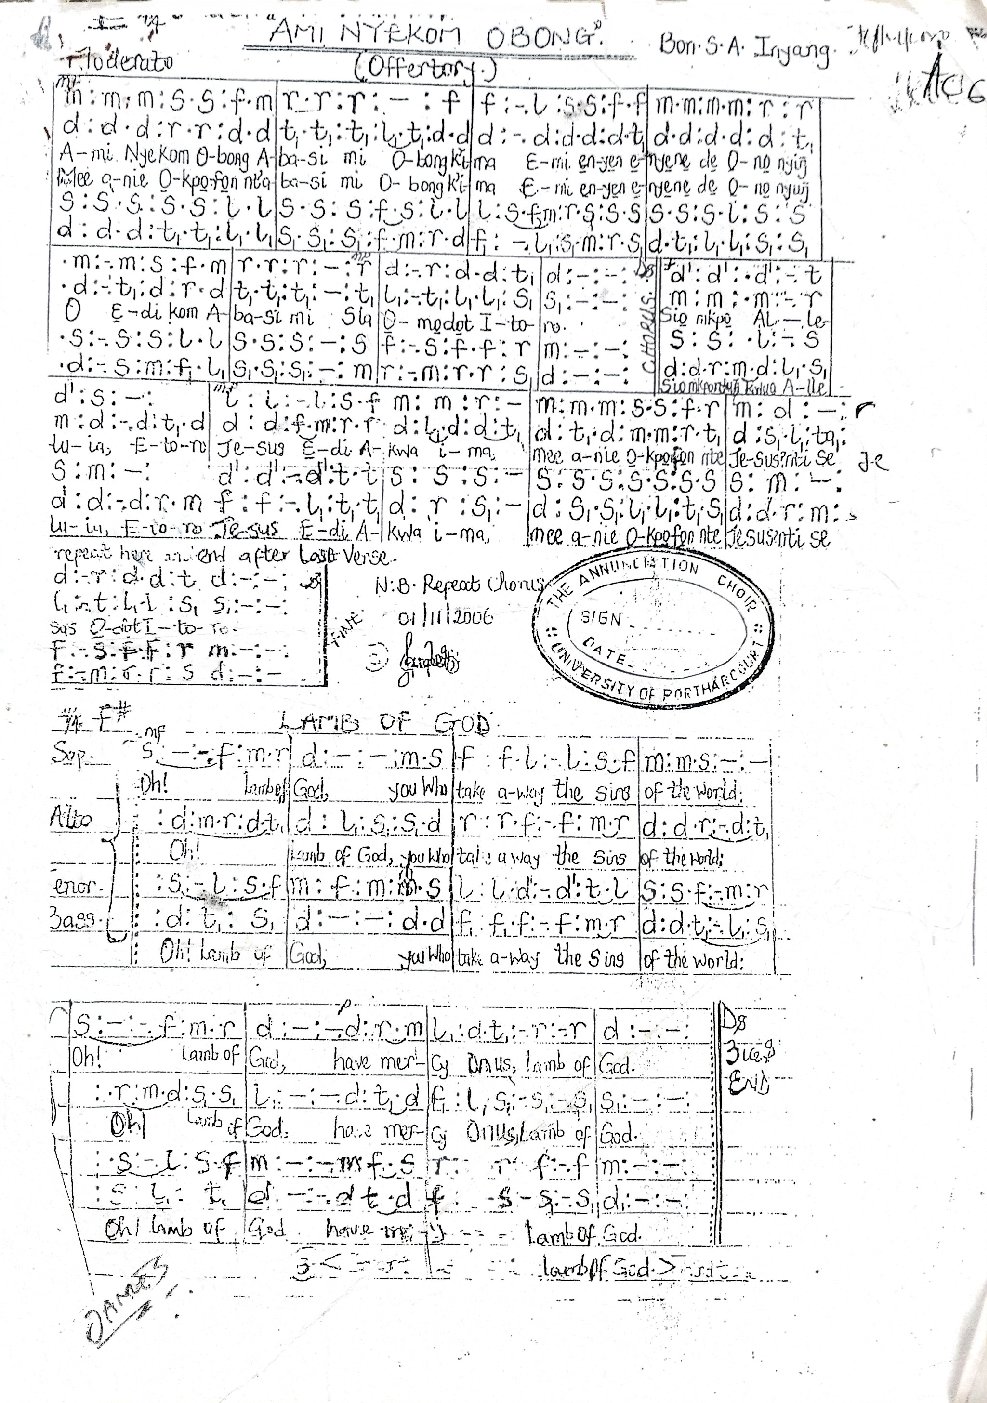 AMI NYEKOM OBONG.
Bon. S. A. Inyang.
Moderato
(Offertory.)
mf
m : m . m : s . s : f . m | r . r : r : - : f | f : - . l : s . s : f . f | m . m : m . m : r : r
d : d . d : r . r : d . d | t, . t, : t, : l, . t, : d . d | d : - . d : d . d : d . t, | d . d : d . d : d : t,
A-mi Nyekom O-bong A- ba-si mi O-bong Ki ma E-mi en-yen e- nyene de O-no nyin
Mee a-nie O-kpofon nta ba-si mi O-bong Ki ma E-mi en-yen e- nyene de O-no nyin
s : s . s : s . s : l . l | s . s : s : f . s : l . l | l : s . f : m . r : s : s . s | s . s : s . l : s : s
d : d . d : t, . t, : l, . l, | s, . s, : s, : f . m : r . d | f, : - . l, : s, . m : r . s, | d . t, : l, . l, : s, : s,
. m : - . m : s : f . m | r . r : r : - : r | d : - . r : d . d : t, | d : - : - : | d' : d' : . d' : - . t
. d : - . t, : d : r . d | t, . t, : t, : - : t, | l, : - . t, : l, . l, : s, | s, : - : - : | m : m : . m : - . r
O E-di kom A- ba-si mi Sia O-modot I-to- ro. CHORUS Sio mkpo AL-le-
. s : - . s : s : l . l | s . s : s : - : s | f : - . s : f . f : r | m : - : - : | s : s : . l : - . s
. d : - . s : m : f . l, | s, . s, : s, : - : m | r : - . m : r . r : s, | d : - : - : | d : d . r : m . d : l, . s,
d' : s : - : | l : l : - . l : s . f | m : m : r : - | m : m . m : s . s : f . r | m : d : - : r
m : d : - . d : t, . d | d : d : f . m : r . r | d : l, . d : d : t, | d : t, . d : m . m : r . t, | d : s, : l, : ta, :
lu-ia, E-to-ro Je-sus E-di A- kwa i-ma, mee a-nie O-kpofon nte Jesus? nti se Je
s : m : - : | d' : d' : - . d' : t . t | s : s : s : - | s : s . s : s . s : s . s | s : m : - :
d : d : - . d : r . m | f : f : - . l, : t, . t, | d : r : s, : - | d : s, . s, : l, . l, : t, . s, | d : d : r : m : s
lu-ia, E-to-ro Je-sus E-di A- kwa i-ma, mee a-nie O-kpofon nte Jesus? nti se
repeat here and end after Last Verse.
d : - . r : d . d : t, d : - : - :
l, : - . t, : l, . l, : s, s, : - : - :
sus O-dot I-to-ro.
f : - . s : f . f : r m : - : - :
f : - . m : r . r : s d : - : -
FINE
N.B. Repeat Chorus
01/11/2006
THE ANNUNCIATION CHOIR
SIGN
DATE
UNIVERSITY OF PORTHARCOURT
F# mf LAMB OF GOD
Sop. s : - : - . f : m . r | d : - : - : m . s | f : f . l : - . l : s . f | m : m . s : - : -
Oh! lamb of God, you who take a-way the sins of the world:
Alto : d : m . r : d . t, | d : l, : s, : s, . d | r : r . f : - . f : m . r | d : d . r : - . d : t,
Oh! Lamb of God, you who take away the sins of the world:
Tenor. : s : - . l : s . f | m : f : m : m . s | l : l . d' : - . d' : t . l | s : s . f : - . m : r
Bass. : d : t, : s, | d : - : - : d . d | f, : f, . f : - . f : m . r | d : d . t, : - . l, : s,
Oh! lamb of God, you who take a-way the sing of the world:
s : - : - . f : m . r | d : - : - . d : r . m | l, : d . t, : - . r : - . r | d : - : - :
p
D.S
3 ice,s
END
Oh! lamb of God, have mer- cy On us, lamb of God.
: r : m . d : s, . s, | l, : - : - . d : t, . d | f, : l, . s, : - . s, : - . s, | s, : - : - :
Oh! lamb of God. have mer- cy On us, Lamb of God.
: s : - . l : s . f | m : - : - . m : f . s | r : r . f : - . f | m : - : - :
: s : l, : t, | d : - : - . d : t . d | f : . s : - . s : - . s, | d : - : -
Oh! lamb of God have Lamb Of God.
lamb of God.
JAMES